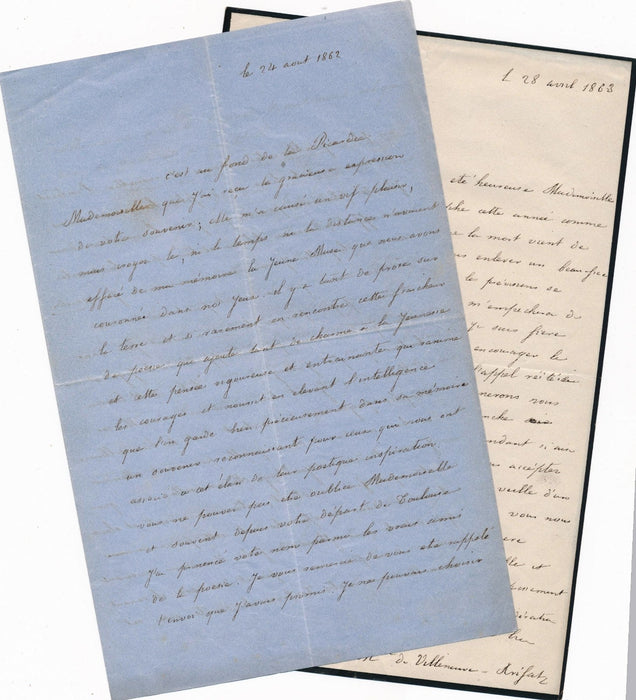 le 24 aout 1862
c'est au fond de la Picardie
Mademoiselle que j'ai reçu la gracieuse expression
de votre souvenir; Elle m'a causé un vif plaisir,
mais croyez le, ni le temps ni la distance n'avaient
effacé de ma mémoire la Jeune Muse que nous avons
couronnée dans nos Jeux. il y a tant de prose sur
la terre et si rarement on rencontre cette fraicheur
de poésie qui ajoute tant de charme à la Jeunesse
et cette pensée vigoureuse et entrainante qui ranime
les courages et nourrit en elevant l'intelligence
que l'on garde bien précieusement dans sa mémoire
un souvenir reconnaissant pour ceux qui vous ont
associé a cet élan de leur poetique inspiration.
vous ne pouvez pas etre oubliée Mademoiselle
et souvent depuis votre départ de Toulouse
J'ai prononcé votre nom parmi les vrais amis
de la poesie. Je vous remercie de vous etre rappelé
l'envoi que J'avais promis. Je ne pouvais choisir
L 28 avril 1863
eté heureuse Mademoiselle
cette année comme
la mort vient de
enlever un beau frere
se
m'empechera de
Je suis frere
encourager le
l'appel réitéré
vous
pendant si au
accepter
veille d'un
vous nous
et
de Villeneuve-Arifat